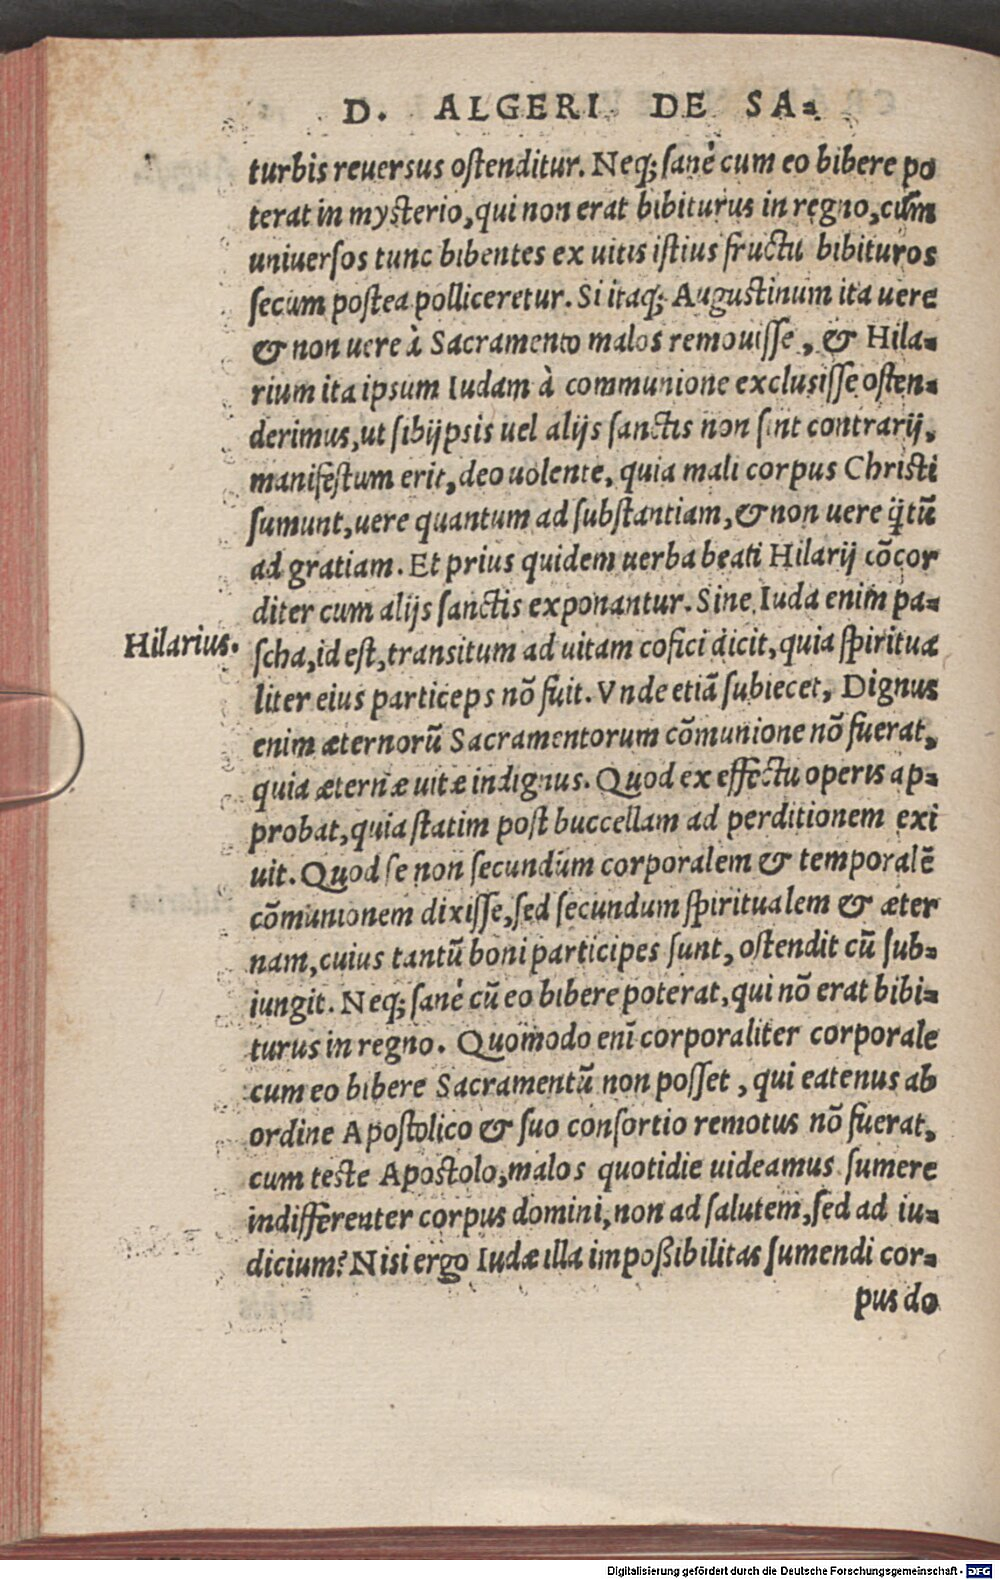 D. ALGERI DE SA-
turbis reuersus ostenditur. Neq; sanè cum eo bibere po
terat in mysterio, qui non erat bibiturus in regno, cùm
uniuersos tunc bibentes ex uitis istius fructu bibituros
secum postea polliceretur. Si itaq; Augustinum ita uere
& non uere à Sacramento malos remouisse, & Hila-
rium ita ipsum Iudam à communione exclusisse osten-
derimus, ut sibijpsis uel alijs sanctis non sint contrarij,
manifestum erit, deo uolente, quia mali corpus Christi
sumunt, uere quantum ad substantiam, & non uere q̃tũ
ad gratiam. Et prius quidem uerba beati Hilarij cõcor
diter cum alijs sanctis exponantur. Sine Iuda enim pa-
Hilarius.
scha, id est, transitum ad uitam cofici dicit, quia spiritua
liter eius particeps nõ fuit. Vnde etiã subiecet, Dignus
enim æternorũ Sacramentorum cõmunione nõ fuerat,
quia æternæ uitæ indignus. Quod ex effectu operis ap-
probat, quia statim post buccellam ad perditionem exi
uit. Quod se non secundum corporalem & temporalẽ
cõmunionem dixisse, sed secundum spiritualem & æter
nam, cuius tantũ boni participes sunt, ostendit cũ sub-
iungit. Neq; sanè cũ eo bibere poterat, qui nõ erat bibi-
turus in regno. Quomodo enĩ corporaliter corporale
cum eo bibere Sacramentũ non posset, qui eatenus ab
ordine Apostolico & suo consortio remotus nõ fuerat,
cum teste Apostolo, malos quotidie uideamus sumere
indifferenter corpus domini, non ad salutem, sed ad iu-
dicium? Nisi ergo Iudæ illa impoßibilitas sumendi cor-
pus do
Digitalisierung gefördert durch die Deutsche Forschungsgemeinschaft - DFG